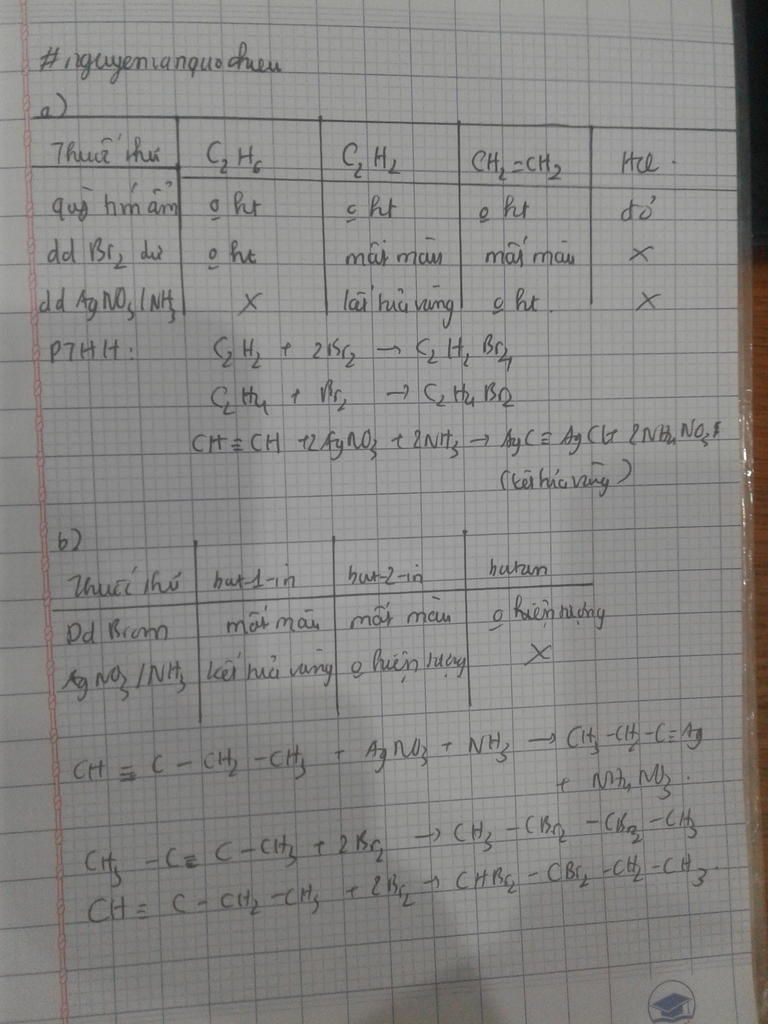 #nguyenvanquochieu
a)
Thuốc thử C₂H₆ C₂H₂ CH₂=CH₂ HCl
quỳ tím ẩm o ht o ht o ht đỏ
dd Br₂ dư o ht mất màu mất màu x
dd AgNO₃/NH₃ x kết tủa vàng o ht x
PTHH: C₂H₂ + 2Br₂ → C₂H₂Br₄
C₂H₄ + Br₂ → C₂H₄Br₂
CH≡CH + 2AgNO₃ + 2NH₃ → AgC≡AgC↓+ 2NH₄NO₃
(kết tủa vàng)
b)
Thuốc thử but-1-in but-2-in butan
Dd Brom mất màu mất màu o hiện tượng
AgNO₃/NH₃ kết tủa vàng o hiện tượng x
CH≡C-CH₂-CH₃ + AgNO₃ + NH₃ → CH₃-CH₂-C≡Ag
+ NH₄NO₃.
CH₃-C≡C-CH₃ + 2Br₂ → CH₃-CBr₂-CBr₂-CH₃
CH≡C-CH₂-CH₃ + 2Br₂ → CHBr₂-CBr₂-CH₂-CH₃.